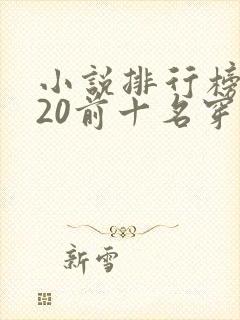 小説排行榜
20前十名穿
新雪